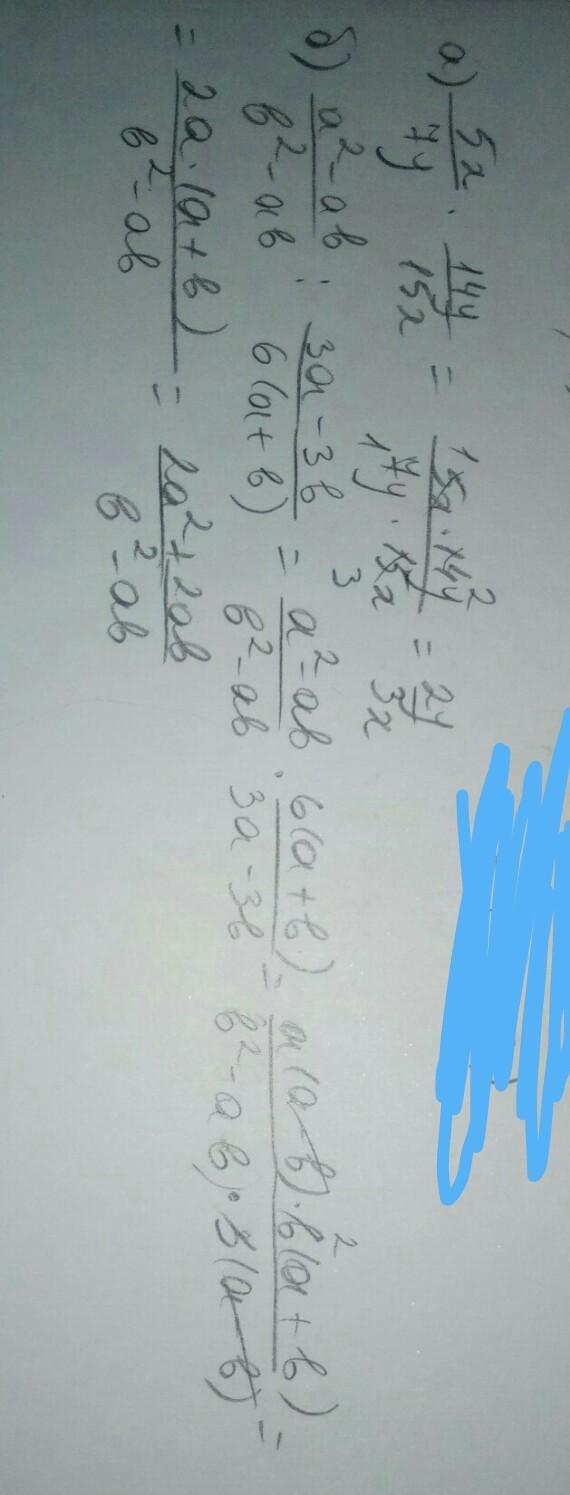 а) 5x/7y · 14y/15x = 5x · 14y/7y · 15x = 2y/3x
1 2 1 3
б) a² - ab/b² - ab : 3a - 3b/6(a + b) = a² - ab/b² - ab · 6(a + b)/3a - 3b = a(a - b) · 6(a + b)/b² - ab) · 3(a - b) =
2
= 2a · (a + b)/b² - ab = 2a² + 2ab/b² - ab